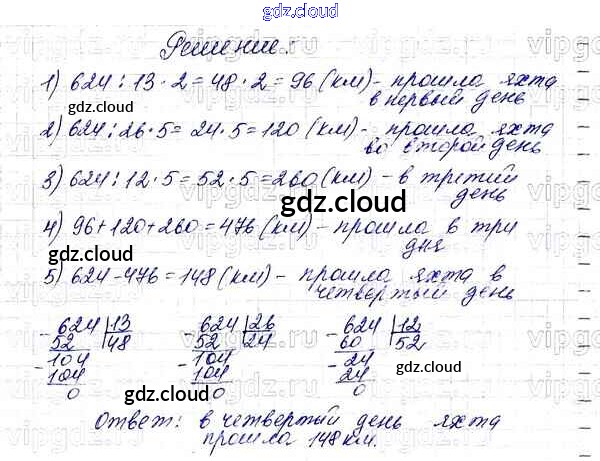 gdz.cloud
gdz.cloud
Решение.
1) 624 : 13 · 2 = 48 · 2 = 96 (км) - прошла яхта
в первый день
gdz.cloud
2) 624 : 26 · 5 = 24 · 5 = 120 (км) - прошла яхта
во второй день
3) 624 : 12 · 5 = 52 · 5 = 260 (км) - в третий
день
gdz.cloud
4) 96 + 120 + 260 = 476 (км) - прошла в три
дня
gdz.cloud
5) 624 - 476 = 148 (км) - прошла яхта в
четвертый день
gdz.cloud
- 624 | 13 - 624 | 26 - 624 | 12
52 | 48 52 | 24 60 | 52
- 104 - 104 - 24
104 104 24
0 0 0
gdz.cloud
gdz.cloud
Ответ: в четвертый день яхта
прошла 148 км.
gdz.cloud